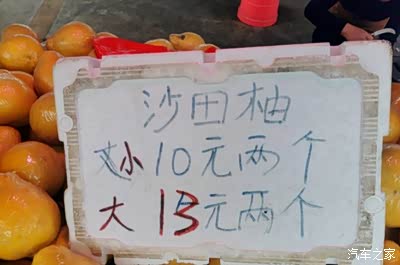 沙田柚
小10元两个
大13元两个
汽车之家